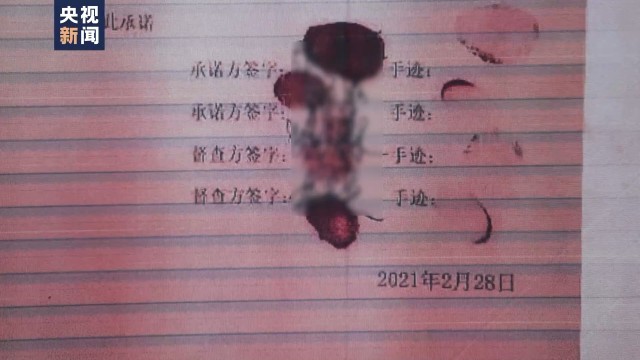 央视
新闻
此承诺
承诺方签字： 手迹：
承诺方签字： 手迹：
督查方签字： 手迹：
督查方签字： 手迹：
2021年2月28日